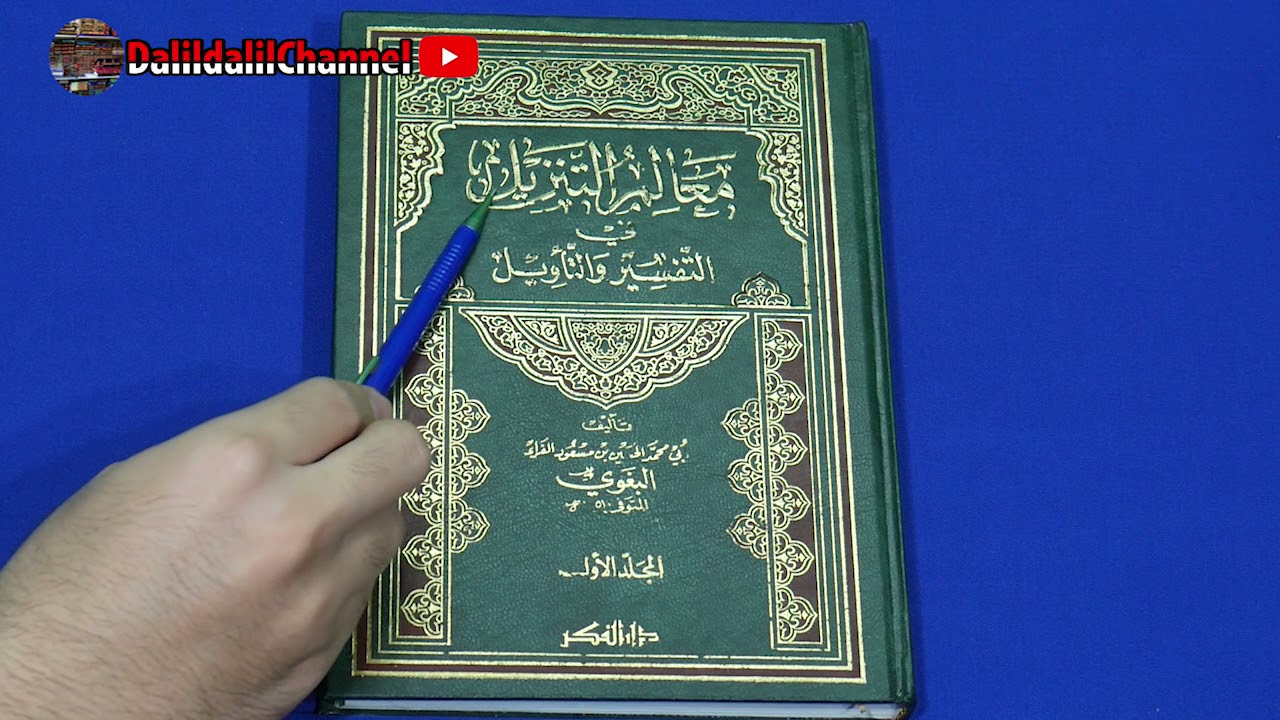 DalildalilChannel
مَعَالِمُ التَّنزِيل
في
التَّفْسِيْر وَالتَّأْوِيْل
تأليف
بي محمد الحسين بن مسعود الفراء
البغوي
المتوفى
المجلد الأول
دار الفكر